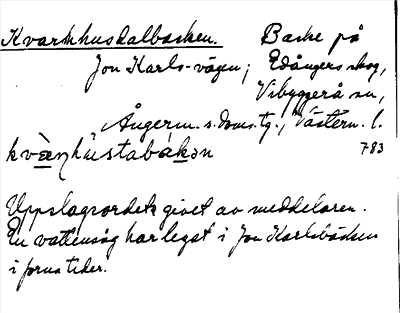 Kvarnhusdalbacken. Backe på
Jon Karls-vägen; Edångers skog,
Vibyggerå sn,
Ångerm. s. doms. tg., Västern. l.
783
Uppslagsordets givet av meddelaren.
En vattensåg har legat i Jon Karlsbäcken
i forna tider.